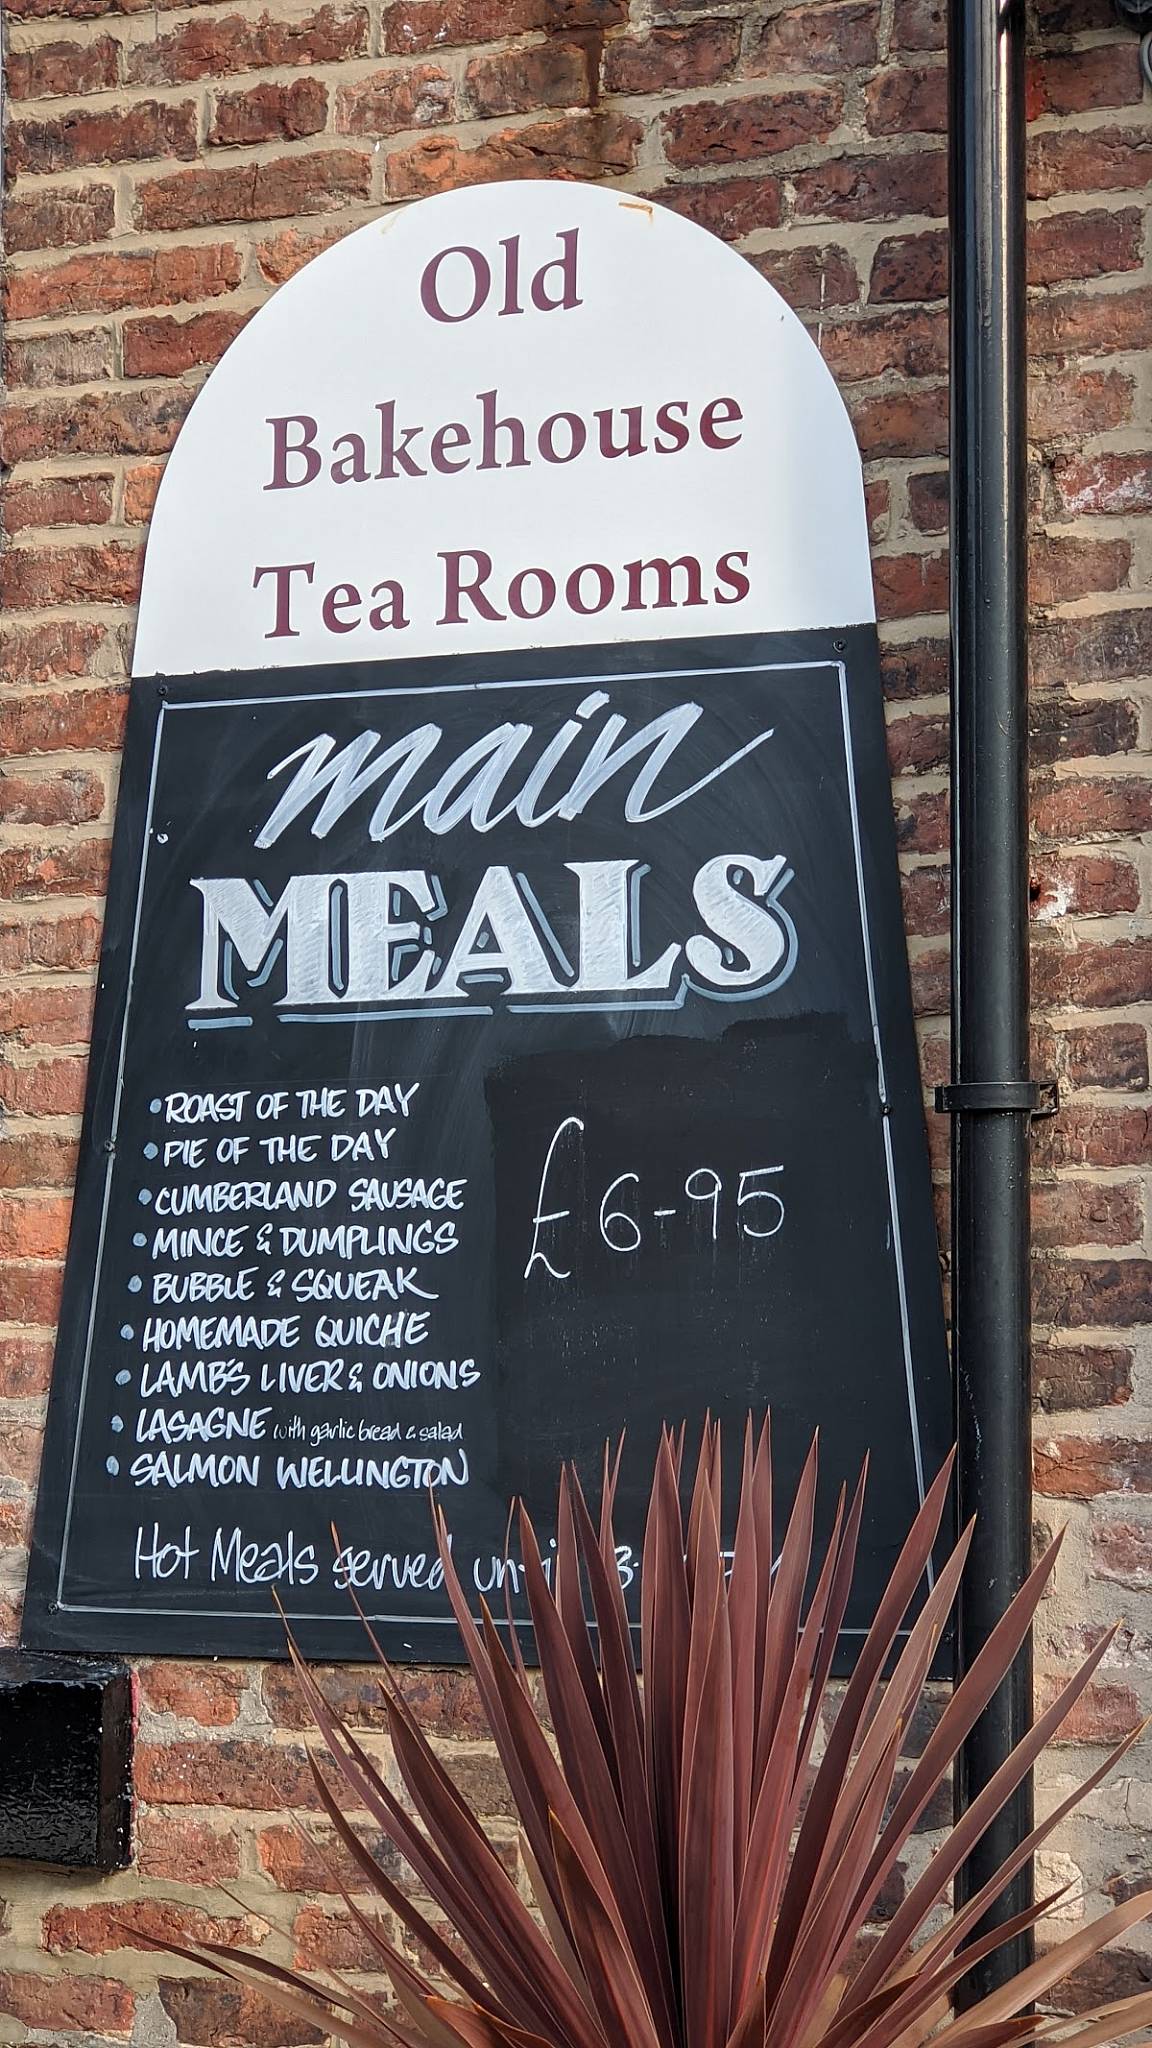 Old
Bakehouse
Tea Rooms
main
MEALS
• ROAST OF THE DAY
• PIE OF THE DAY
• CUMBERLAND SAUSAGE
• MINCE & DUMPLINGS
• BUBBLE & SQUEAK
• HOMEMADE QUICHE
• LAMB'S LIVER & ONIONS
• LASAGNE with garlic bread & salad
• SALMON WELLINGTON
£6-95
Hot Meals served until